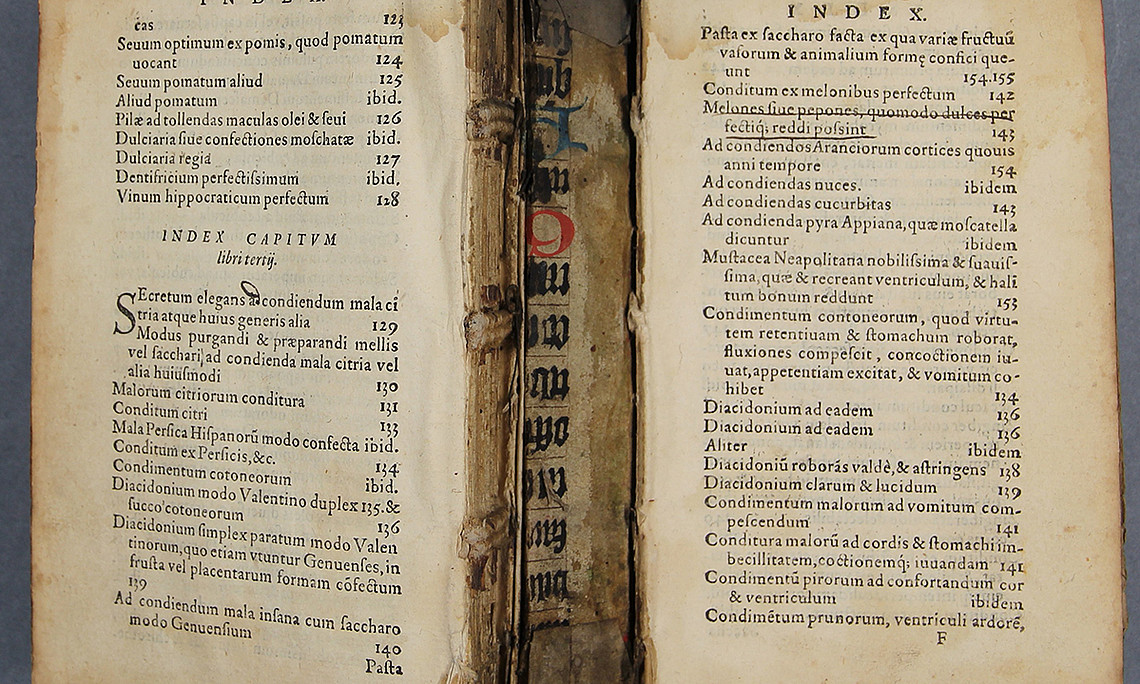 INDEX.
cas 123
Seuum optimum ex pomis, quod pomatum
uocant 124
Seuum pomatum aliud 125
Aliud pomatum ibid.
Pilæ ad tollendas maculas olei & ſeui 126
Dulciaria ſiue confectiones moſchatæ ibid.
Dulciaria regia 127
Dentifricium perfectiſsimum ibid.
Vinum hippocraticum perfectum 128
INDEX CAPITVM
libri tertij.
SEcretum elegans ad condiendum mala ci
tria atque huius generis alia 129
Modus purgandi & præparandi mellis
vel ſacchari, ad condienda mala citria vel
alia huiuſmodi 130
Malorum citriorum conditura 131
Conditum citri 133
Mala Perſica Hiſpanorũ modo confecta ibid.
Conditum ex Perſicis, &c. 134
Condimentum cotoneorum ibid.
Diacidonium modo Valentino duplex 135. &
ſucco cotoneorum 136
Diacidonium ſimplex paratum modo Valen
tinorum, quo etiam vtuntur Genuenſes, in
fruſta vel placentarum formam cõfectum
139
Ad condiendum mala inſana cum ſaccharo
modo Genuenſium 140
Paſta
INDEX.
Paſta ex ſaccharo facta ex qua variæ fructuũ
vaſorum & animalium formę confici que-
unt 154.155
Conditum ex melonibus perfectum 142
Melones ſiue pepones, quomodo dulces per
fectiq; reddi poſsint 143
Ad condiendos Aranciorum cortices quouis
anni tempore 154
Ad condiendas nuces. ibidem
Ad condiendas cucurbitas 143
Ad condienda pyra Appiana, quæ moſcatella
dicuntur ibidem
Muſtacea Neapolitana nobiliſsima & ſuauiſ-
ſima, quæ & recreant ventriculum, & hali
tum bonum reddunt 153
Condimentum contoneorum, quod virtu-
tem retentiuam & ſtomachum roborat,
fluxiones compeſcit, concoctionem iu-
uat, appetentiam excitat, & vomitum co-
hibet 134
Diacidonium ad eadem 136
Diacidonium ad eadem 136
Aliter ibidem
Diacidoniũ roborãs valdè, & aſtringens 138
Diacidonium clarum & lucidum 139
Condimentum malorum ad vomitum com-
peſcendum 141
Conditura malorũ ad cordis & ſtomachi im-
becillitatem, coctionemq; iuuandam 141
Condimentũ pirorum ad confortandum cor
& ventriculum ibidem
Condimẽtum prunorum, ventriculi ardorẽ,
F